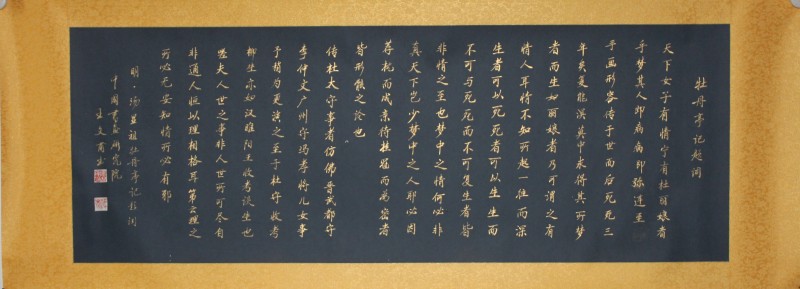 牡丹亭记题词
天下女子有情宁有杜丽娘者
乎梦其人即病病即弥连至
手画形容传于世而后死死三
年矣复能溟莫中求得其所梦
者而生如丽娘者乃可谓之有
情人耳情不知所起一往而深
生者可以死死者可以生生而
不可与死死而不可复生者皆
非情之至也梦中之情何必非
真天下岂少梦中之人耶必因
荐枕而成亲待挂冠而为密者
皆形骸之论也
传杜太守事者仿佛晋武都守
李仲文广州守冯孝将儿女事
予稍为更演之至于杜守收考
柳生亦如汉睢阳王收考谈生也
嗟夫人世之事非人世所可尽自
非通人恒以理相格耳第云理之
所必无安知情所必有邪
明·汤显祖牡丹亭记题词
中国书画研究院